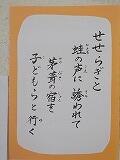 せせらぎと
蛙の声に誘われて
茅葺の宿を
子どもらと行く